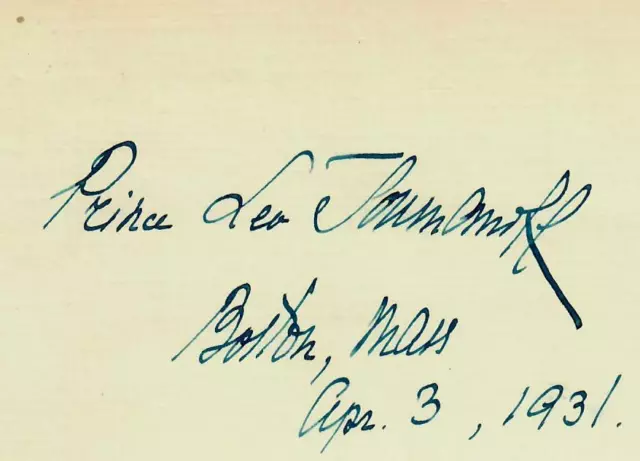 Prince Leo Toumanoff
Boston, Mass
Apr. 3, 1931.